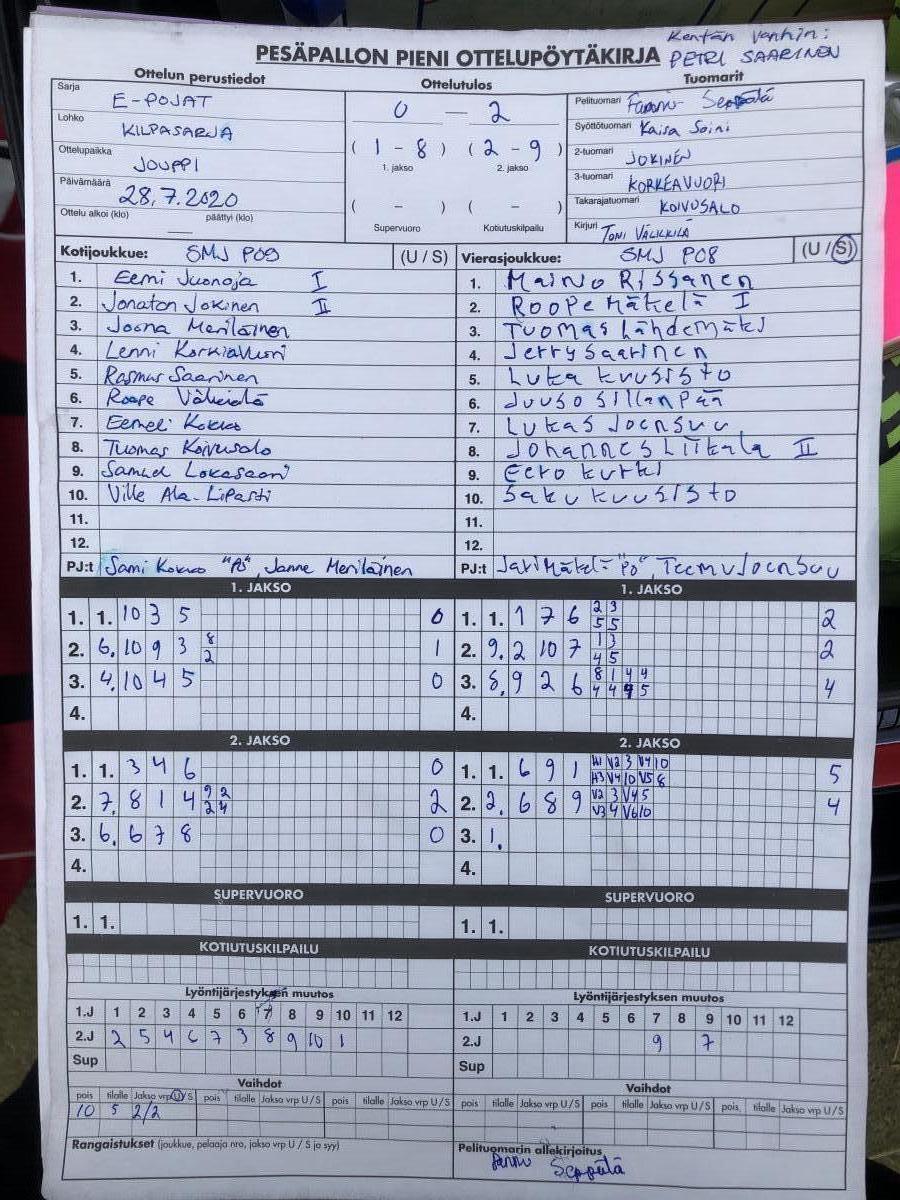 Kentän vanhin:
PESÄPALLON PIENI OTTELUPÖYTÄKIRJA PETRI SAARINEN
Ottelun perustiedot Ottelutulos Tuomarit
Sarja E-POJAT
Lohko KILPASARJA
Ottelupaikka JOUPPI
Päivämäärä 28.7.2020
Ottelu alkoi (klo) päättyi (klo)
0 — 2
( 1 - 8 ) ( 2 - 9 )
1. jakso 2. jakso
( - ) ( - )
Supervuoro Kotiutuskilpailu
Pelituomari Seppälä
Syöttötuomari Kaisa Soini
2-tuomari JOKINEN
3-tuomari KORKEAVUORI
Takarajatuomari KOIVUSALO
Kirjuri TONI VÄLIKKILÄ
Kotijoukkue: SMJ P09 (U / S)
1. Eemi Juonoja I
2. Jonatan Jokinen II
3. Joona Meriläinen
4. Lenni Korkiavuori
5. Rasmus Saarinen
6. Roope
7. Eemeli Kokko
8. Tuomas Koivusalo
9. Samuel
10. Ville Ala-Lipasti
11.
12.
PJ:t Sami Kokko "PÖ", Janne Meriläinen
Vierasjoukkue: SMJ P08 (U / S)
1. Mainio Rissanen
2. Roope Mäkelä I
3. Tuomas Lähdemäki
4. Jerry Saarinen
5. Luka Kuusisto
6. Juuso Sillanpää
7. Lukas Joensuu
8. Johannes Liikala II
9. Eero Kurki
10. Saku Kuusisto
11.
12.
PJ:t Jari Mäkelä "PÖ", Teemu Joensuu
1. JAKSO
1. 1. 10 3 5 0
2. 6. 10 9 3 8 1
2
3. 4. 10 4 5 0
4.
1. JAKSO
1. 1. 1 7 6 2 3 2
5 5
2. 9. 2 10 7 1 3 2
4 5
3. 8. 9 2 6 8 1 4 4 4
4 4 9 5
4.
2. JAKSO
1. 1. 3 4 6 0
2. 7. 8 1 4 9 2 2
2 4
3. 6. 6 7 8 0
4.
2. JAKSO
1. 1. 6 9 1 H1 V2 3 V4 10 5
H3 V4 10 V5 8
2. 2. 6 8 9 V2 3 V4 5 4
V3 4 V6 10
3. 1.
4.
SUPERVUORO
1. 1.
SUPERVUORO
1. 1.
KOTIUTUSKILPAILU
KOTIUTUSKILPAILU
Lyöntijärjestyksen muutos
1.J 1 2 3 4 5 6 7 8 9 10 11 12
2.J 2 5 4 6 7 3 8 9 10 1
Sup
Lyöntijärjestyksen muutos
1.J 1 2 3 4 5 6 7 8 9 10 11 12
2.J 9 7
Sup
Vaihdot
pois tilalle Jakso vrp U / S pois tilalle Jakso vrp U / S pois tilalle Jakso vrp U / S
10 5 2/2
Vaihdot
pois tilalle Jakso vrp U / S pois tilalle Jakso vrp U / S pois tilalle Jakso vrp U / S
Rangaistukset (joukkue, pelaaja nro, jakso vrp U / S ja syy)
Pelituomarin allekirjoitus
Seppälä